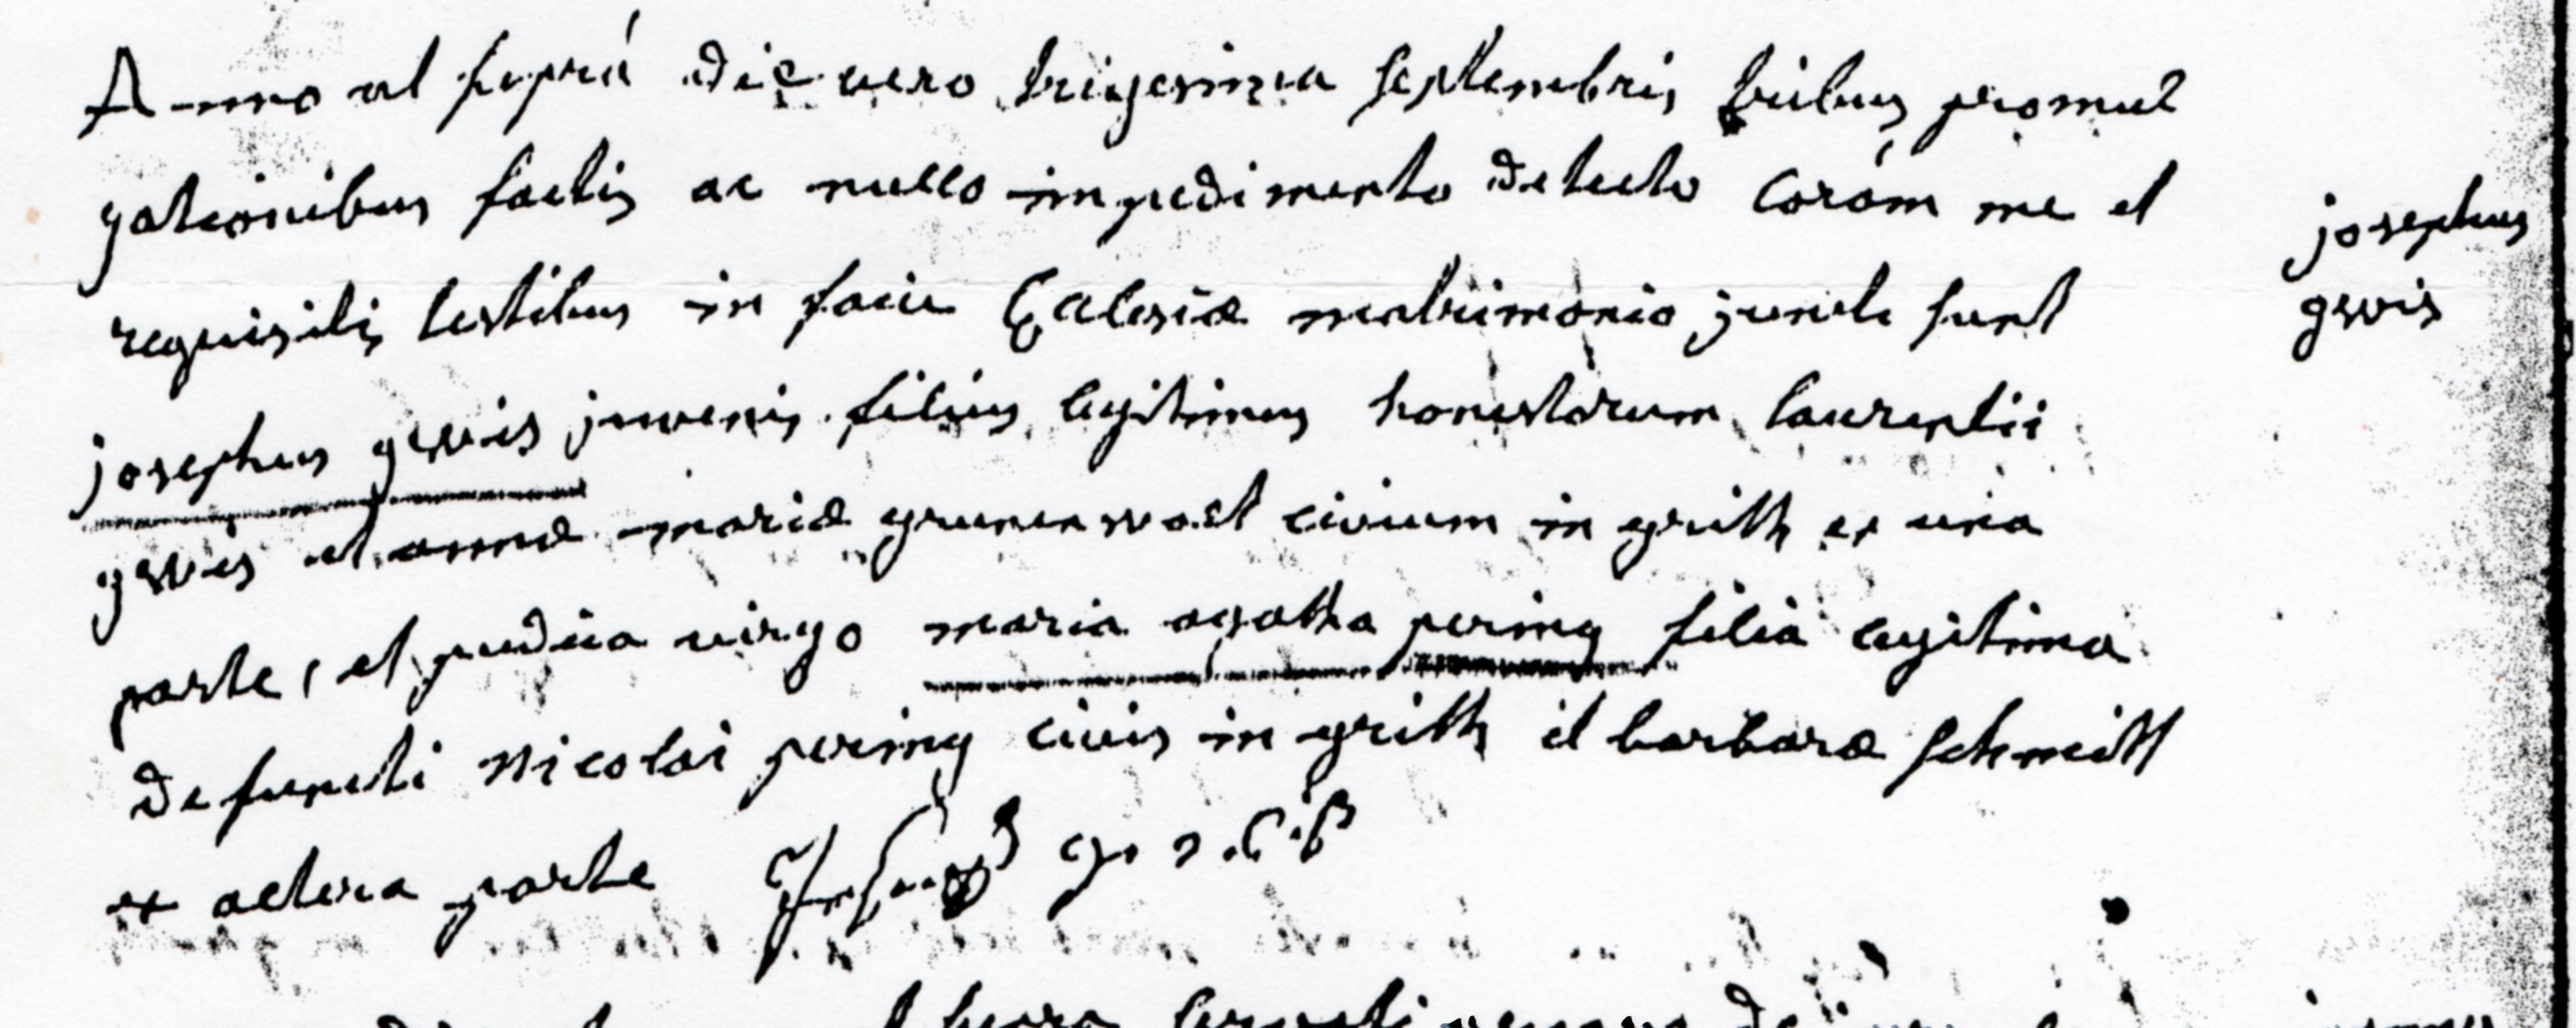 Anno ut suprá die vero trigesima septembris tribus promul
gationibus factis ac nullo impedimento detecto corám me et
requisitis testibus in facie Ecclesiæ matrimonio juncti sunt
josephus
gwis
josephus gwis juvenis filius legitimus honestorum laurentii
gwis et annæ mariæ grunenwalt civium in grith ex una
parte, et pudica virgo maria agatha pering filia legitima
defuncti nicolai pering civis in grith et barbaræ schmitt
ex altera parte